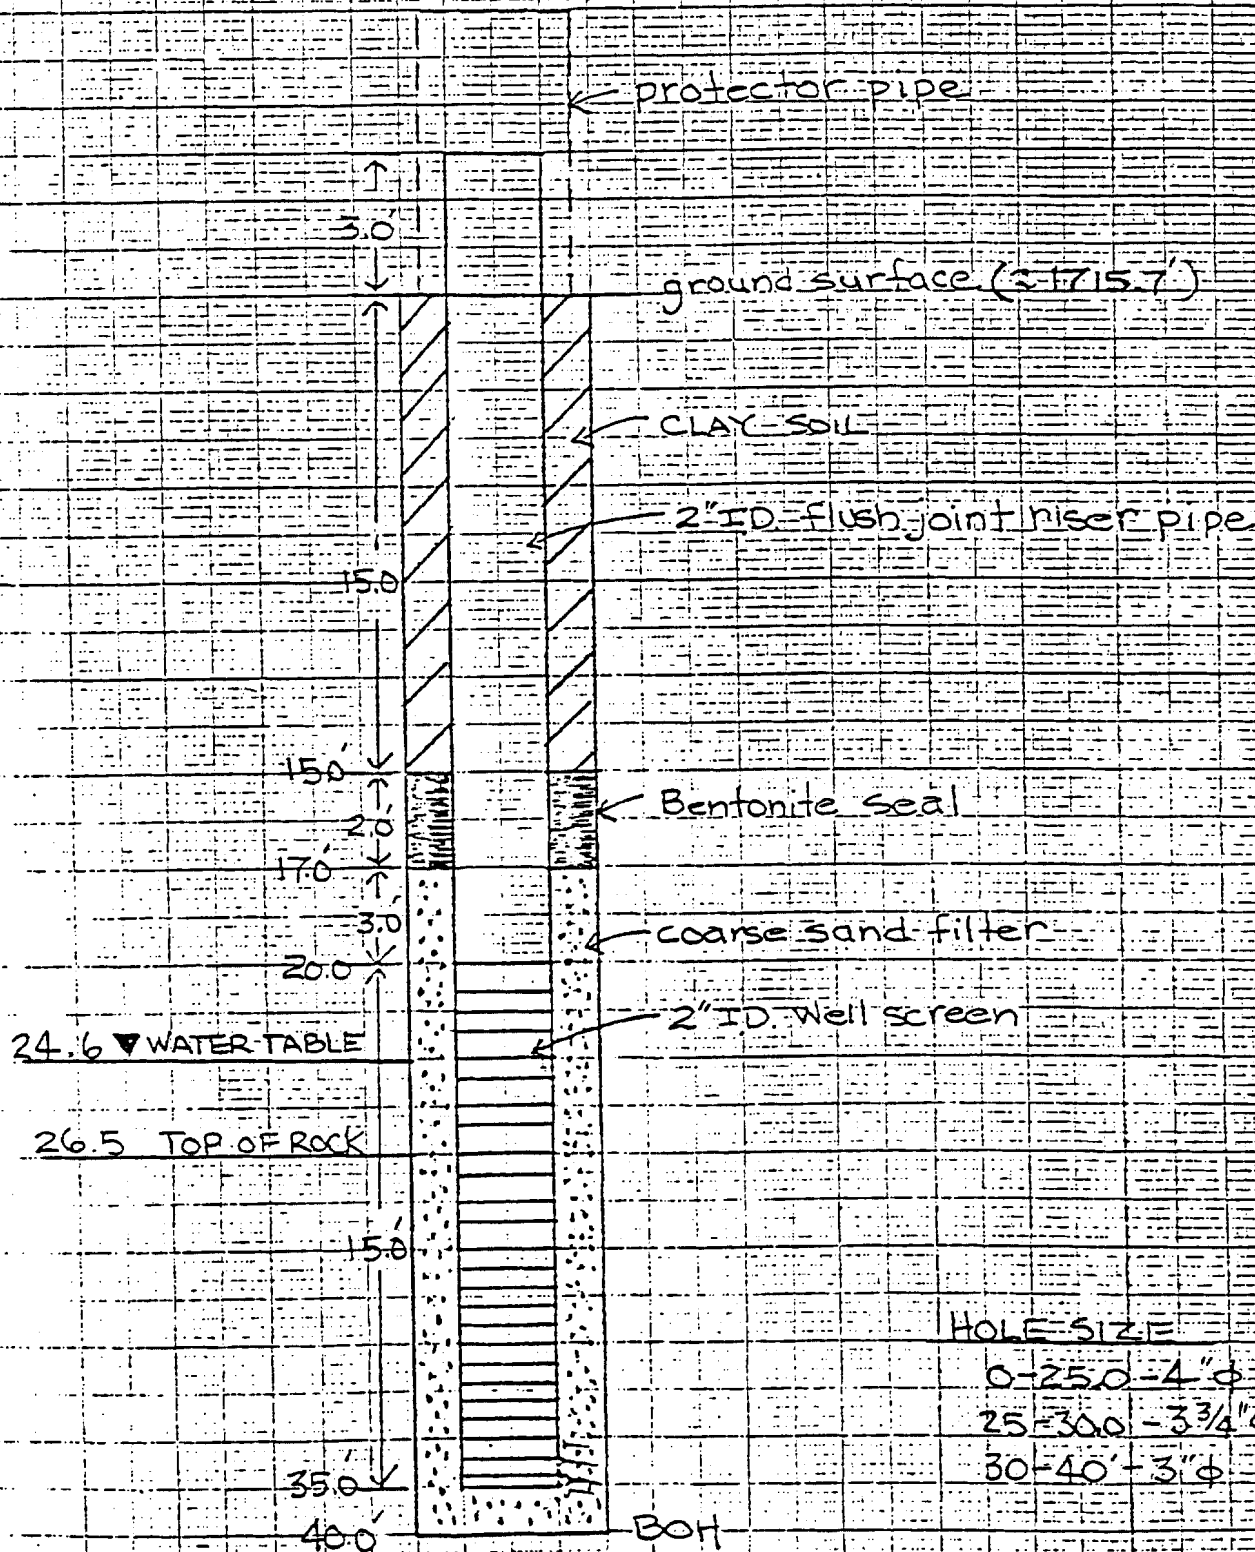 protector pipe
3.0'
ground surface (≈1715.7')
CLAY SOIL
2" ID flush joint riser pipe
15.0
15.0'
Bentonite seal
2.0'
17.0'
3.0'
coarse sand filter
20.0'
2" ID Well screen
24.6 ▼ WATER TABLE
26.5 TOP OF ROCK
15.0'
HOLE SIZE
0-25.0 - 4" ϕ
25-30.0 - 3 3/4"
30-40' - 3" ϕ
35.0'
40.0'
BOH